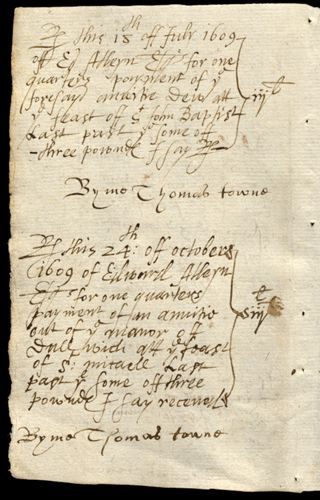 R this 18 th off July 1609
off Ed Alleyn Esqr for one
quarters payment of ye
foresayd anuitie dew att
ye feast of St John Baptist
Last past ye some of
three pownde I say R
iij l
By me Thomas towne
R this 24: th of october
1609 of Edward Alleyn
Esqr for one quarters
payment of an anuitie
out of ye manor of
Dullwich att ye feast
of St: mitaell Last
past ye some off three
pownde I say receved
iij l
By me Thomas towne